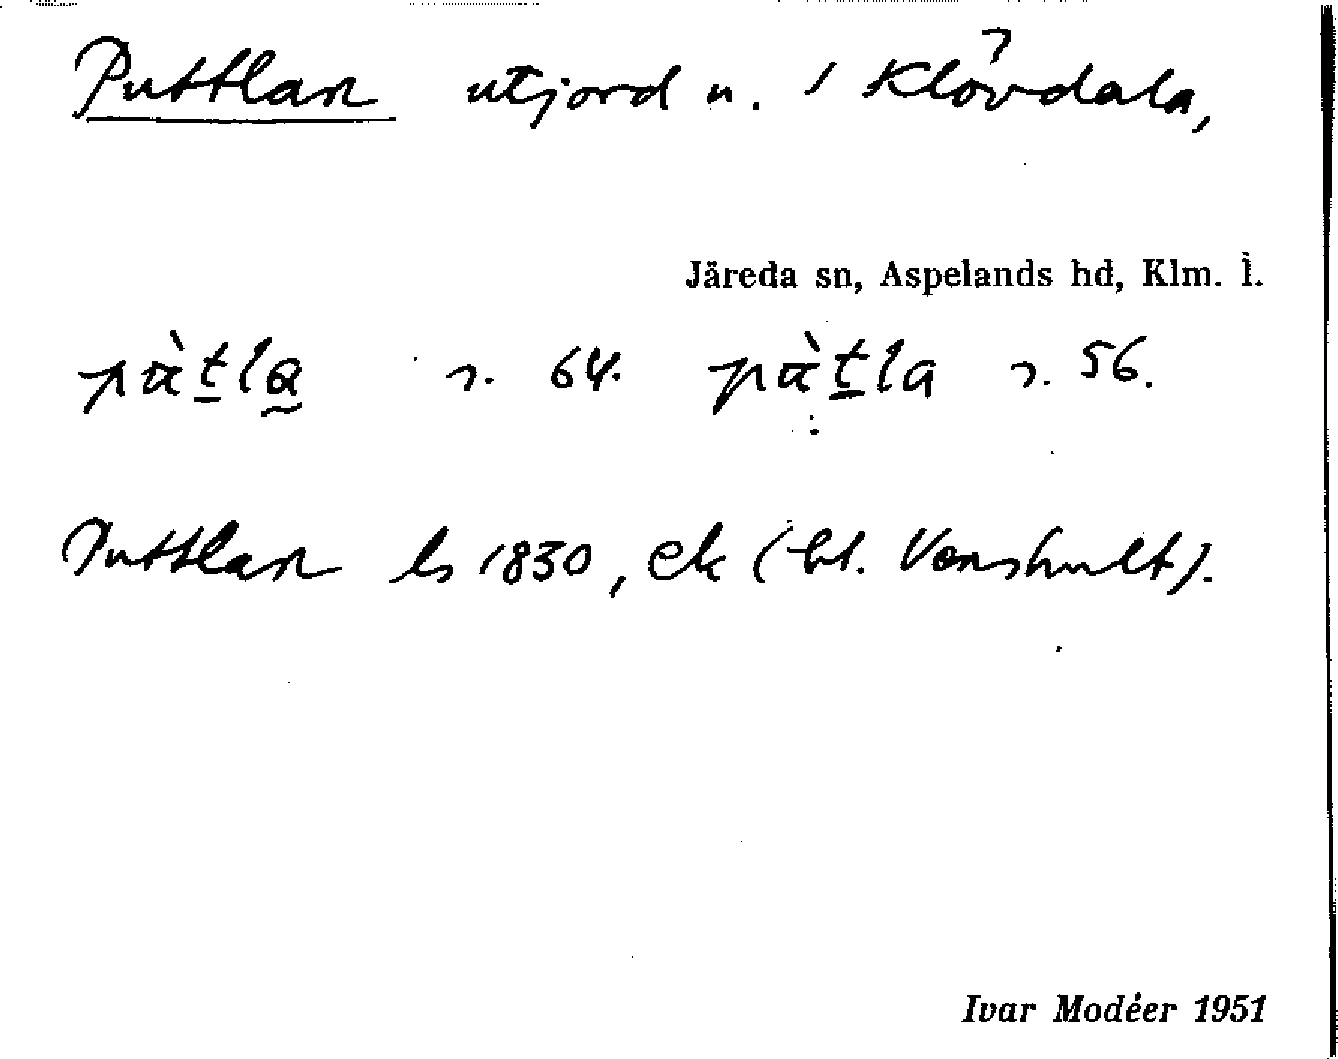 Puttlan utjord n. / Klövdala,
Järeda sn, Aspelands hd, Klm. l.
pàt̲la̰ s. 64. pàt̲la s. 56.
Puttlan ls 1830, ek (ht. Vonshult).
Ivar Modéer 1951